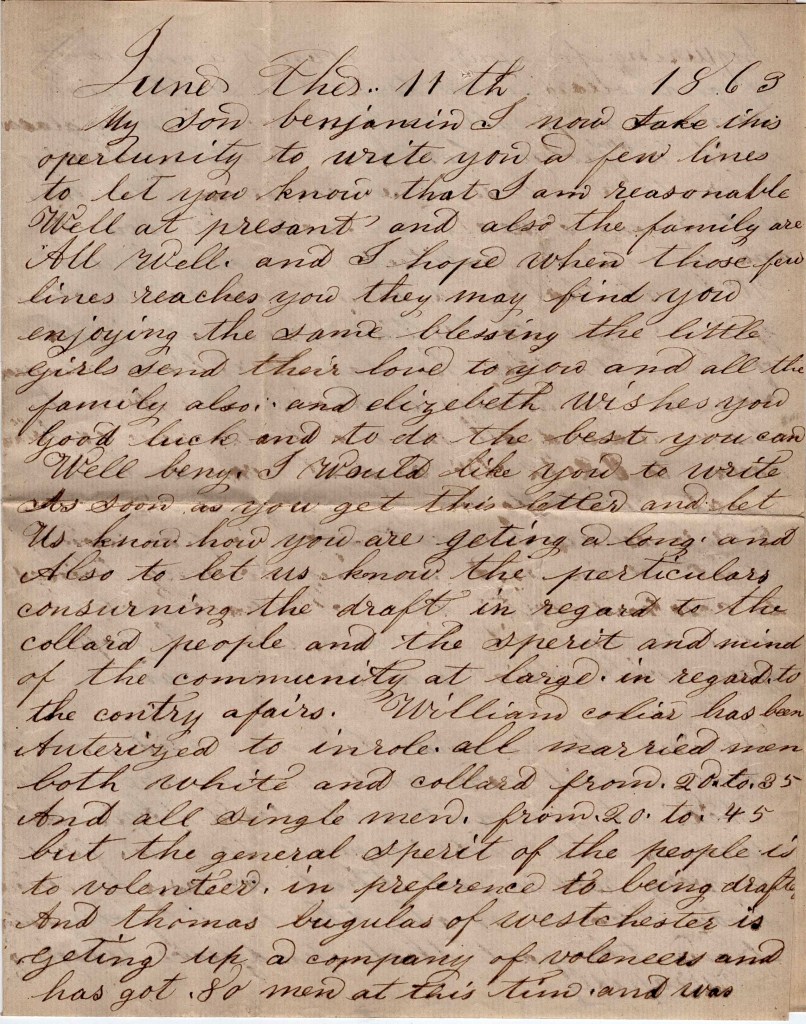 June Thes.. 11th 1863
My son benjamin I now take this
opertunity to write you a few lines
to let you know that I am reasonable
Well at presant and also the family are
All Well. and I hope when those few
lines reaches you they may find you
enjoying the same blessing the little
girls send their love to you and all the
family also: and elizebeth wishes you
Good luck and to do the best you can
Well benj. I Would like you to write
As soon as you get this letter and let
Us know how you are geting a long. and
Also to let us know the perticulars
consurning the draft. in regard to the
collard people and the sperit and mind
of the community at large. in regard to
the contry afairs. William has been
Auterized to inrole. all married men
both white and collard from. 20. to. 35
And all single men. from. 20. to. 45
but the general sperit of the people is
to volenteer. in preference to being
And thomas bugulas of westchester is
geting up a company of voleneers and
has got. 80 men at this tim. and was